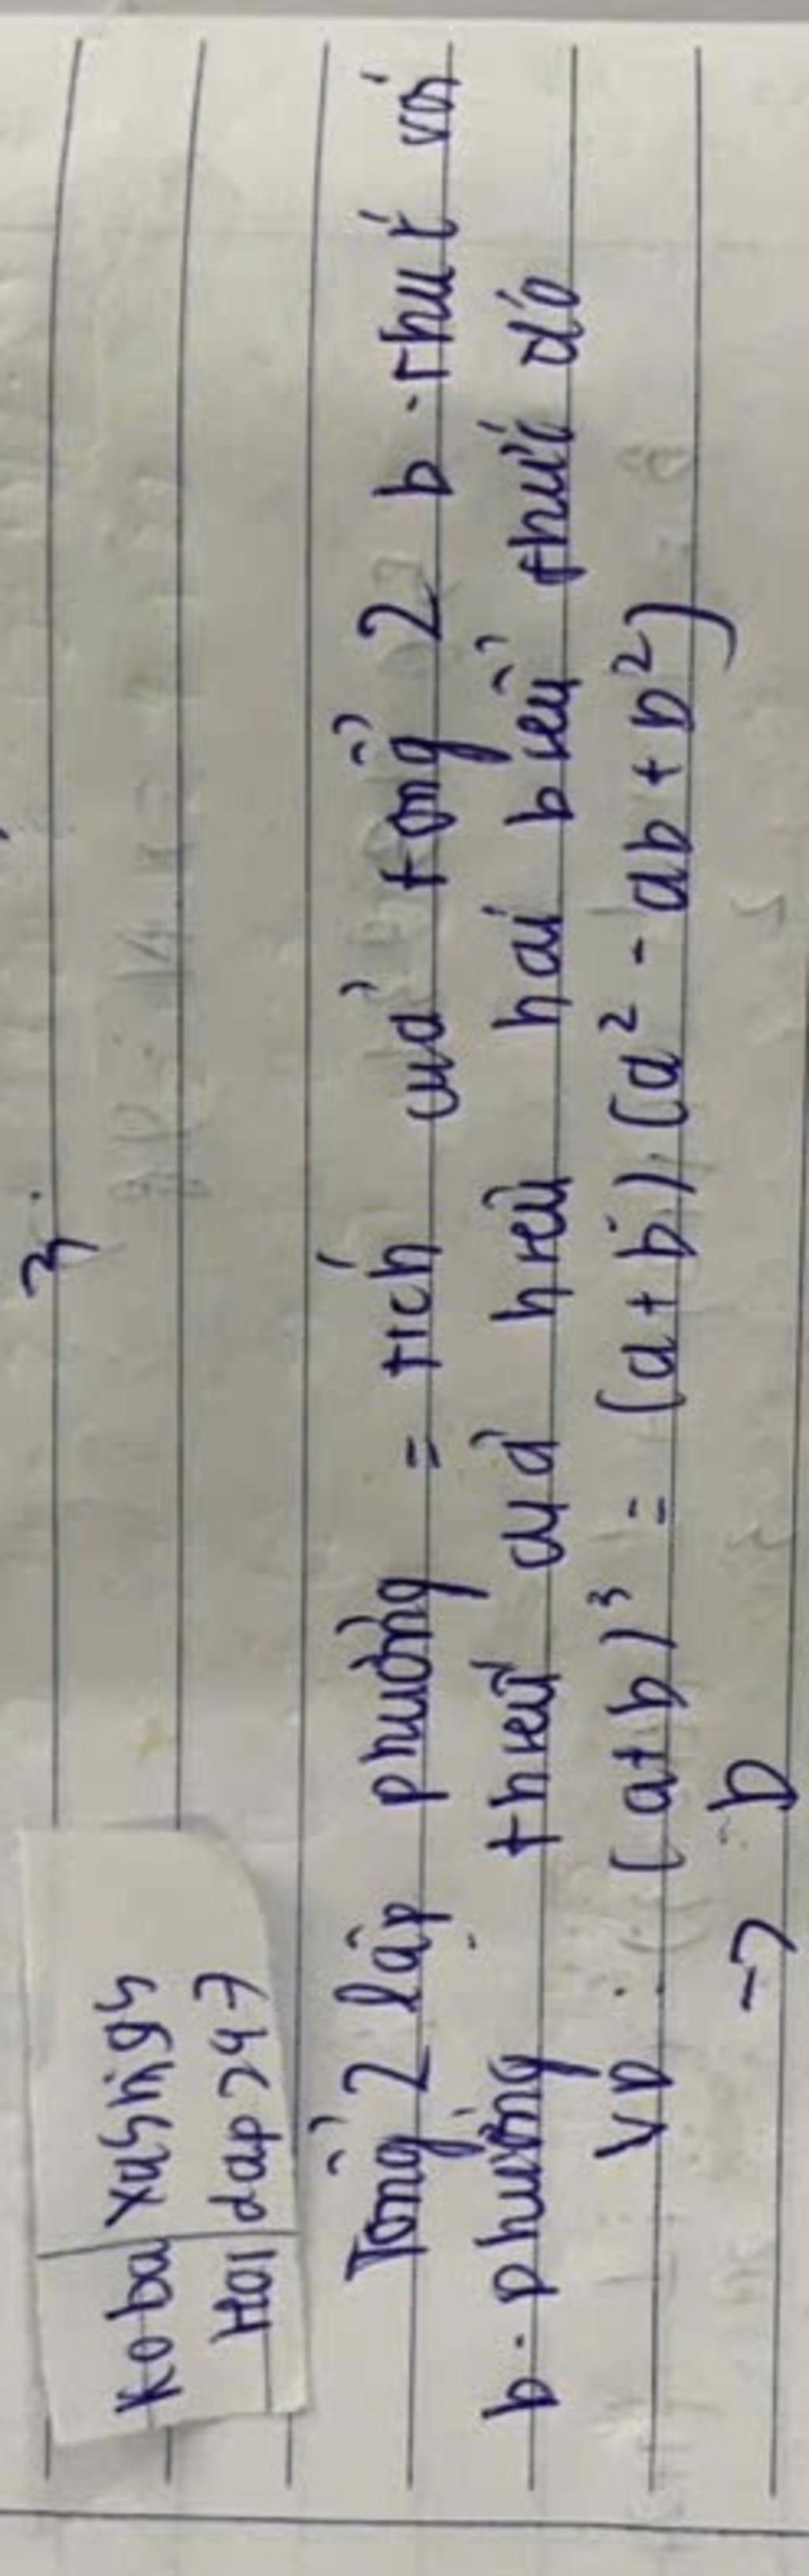 3.
Koba xushigs
Hoi dap 247
Tổng 2 lập phương = tích của tổng 2 b.thức với
b.phương thiếu của hiệu hai biểu thức đó
VD: (a+b)³ = (a+b).(a² - ab + b²)
→ D